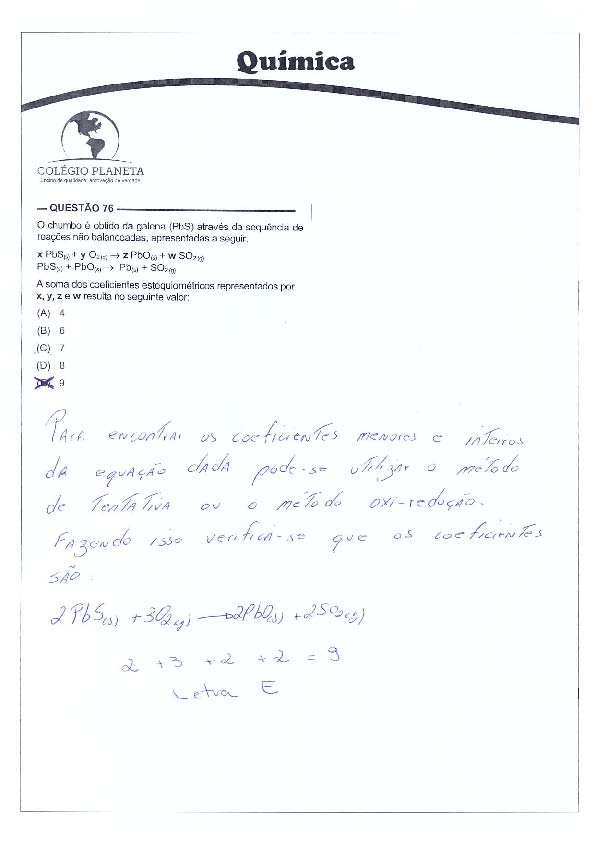 Química
COLÉGIO PLANETA
Ensino de qualidade, aprovação de verdade
QUESTÃO 76
O chumbo é obtido da galena (PbS) através da sequência de
reações não balanceadas, apresentadas a seguir.
x PbS(s) + y O2(g) → z PbO(s) + w SO2(g)
PbS(s) + PbO(s) → Pb(s) + SO2(g)
A soma dos coeficientes estequiométricos representados por
x, y, z e w resulta no seguinte valor:
(A) 4
(B) 6
(C) 7
(D) 8
9
Para encontrar os coeficientes menores e inteiros
da equação dada pode-se utilizar o método
de tentativa ou o método oxi-redução.
Fazendo isso verifica-se que os coeficientes
são:
2PbS(s) + 3O2(g) → 2PbO(s) + 2SO2(g)
2 + 3 + 2 + 2 = 9
Letra E